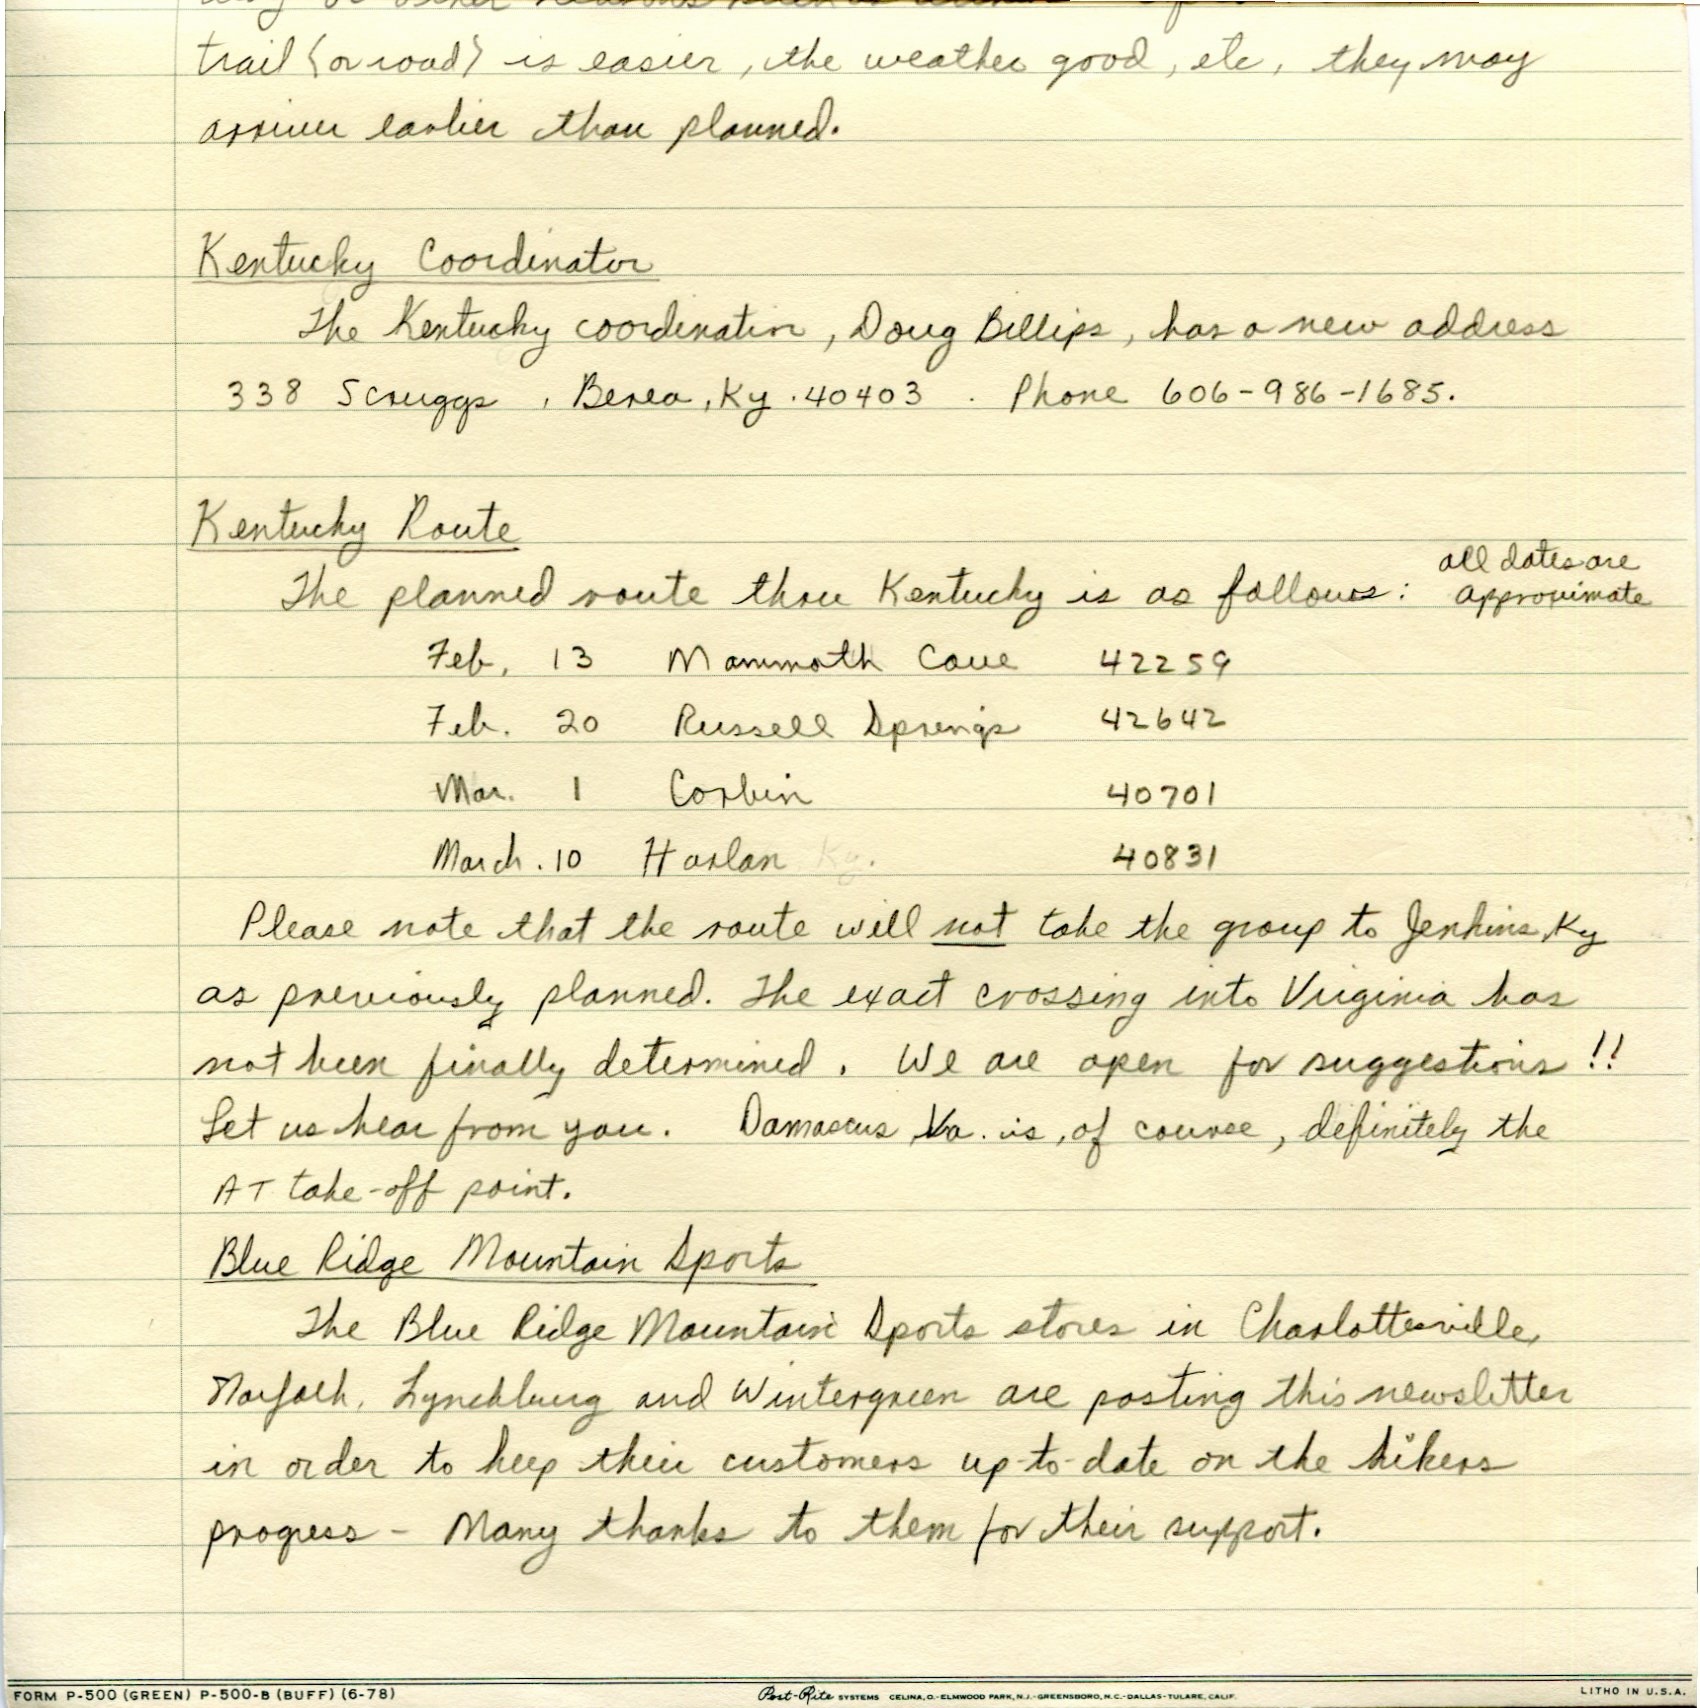 trail (or road) is easier, the weather good, etc, they may
arrive earlier than planned.
Kentucky Coordinator
The Kentucky coordinator, Doug Billips, has a new address
338 Scruggs, Berea, Ky. 40403. Phone 606-986-1685.
Kentucky Route
all dates are
The planned route thru Kentucky is as follows: approximate
Feb. 13 Mammoth Cave 42259
Feb. 20 Russell Springs 42642
Mar. 1 Corbin 40701
March. 10 Harlan Ky. 40831
Please note that the route will not take the group to Jenkins, Ky
as previously planned. The exact crossing into Virginia has
not been finally determined. We are open for suggestions!!
Let us hear from you. Damascus, Va. is, of course, definitely the
AT take-off point.
Blue Ridge Mountain Sports
The Blue Ridge Mountain Sports stores in Charlottesville,
Norfolk, Lynchburg and Wintergreen are posting this newsletter
in order to keep their customers up-to-date on the hikers
progress - Many thanks to them for their support.
FORM P-500 (GREEN) P-500-B (BUFF) (6-78) Post-Rite SYSTEMS CELINA, O.-ELMWOOD PARK, N.J.-GREENSBORO, N.C.-DALLAS-TULARE, CALIF. LITHO IN U.S.A.